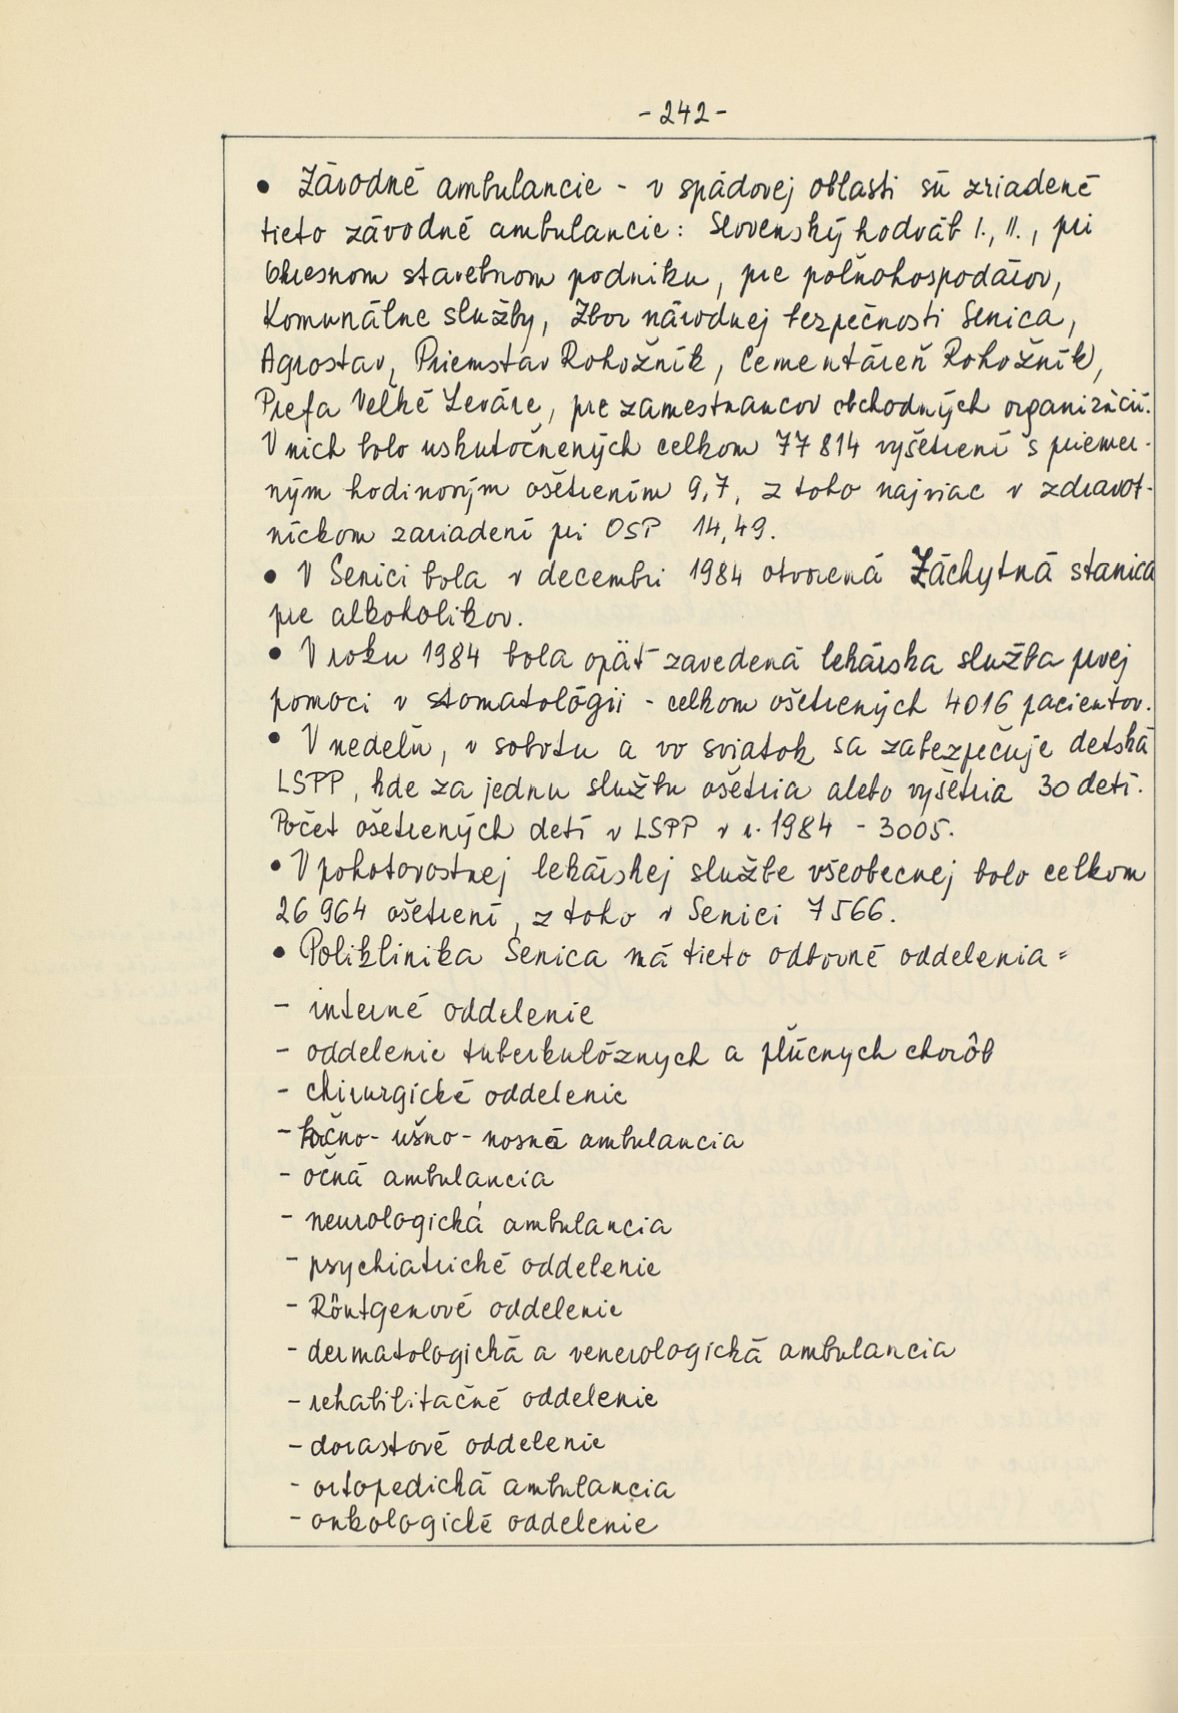 - 242 -
• Závodné ambulancie - v spádovej oblasti sú zriadené
tieto závodné ambulancie: Slovenský hodváb I., II., pri
Okresnom stavebnom podniku, pre poľnohospodárov,
Komunálne služby, Zbor národnej bezpečnosti Senica,
Agrostav, Priemstav Rohožník, Cementáreň Rohožník,
Prefa Veľké Leváre, pre zamestnancov obchodných organizácií.
V nich bolo uskutočnených celkom 77 814 vyšetrení s priemer-
ným hodinovým ošetrením 9,7, z toho najviac v zdravot-
níckom zariadení pri OSP 14,49.
• V Senici bola v decembri 1984 otvorená Záchytná stanica
pre alkoholikov.
• V roku 1984 bola opäť zavedená lekárska služba prvej
pomoci v stomatológii - celkom ošetrených 4016 pacientov.
• V nedeľu, v sobotu a vo sviatok sa zabezpečuje detská
LSPP, kde za jednu službu ošetria alebo vyšetria 30 detí.
Počet ošetrených detí v LSPP v r. 1984 - 3005.
• V pohotovostnej lekárskej službe všeobecnej bolo celkom
26 964 ošetrení, z toho v Senici 7566.
• Poliklinika Senica má tieto odborné oddelenia:
- interné oddelenie
- oddelenie tuberkulóznych a pľúcnych chorôb
- chirurgické oddelenie
- krčno-ušno-nosná ambulancia
- očná ambulancia
- neurologická ambulancia
- psychiatrické oddelenie
- Röntgenové oddelenie
- dermatologická a venerologická ambulancia
- rehabilitačné oddelenie
- dorastové oddelenie
- ortopedická ambulancia
- onkologické oddelenie